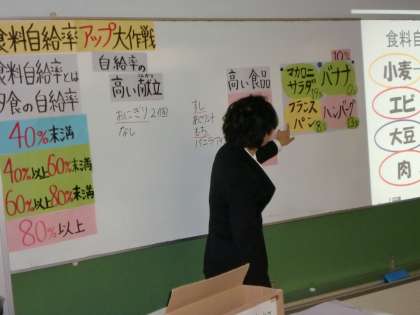 食料自給率アップ大作戦
食料自給率とは
夕食の自給率
40%未満
40%以上60%未満
60%以上80%未満
80%以上
自給率の
高い献立
おにぎり2個
なし
高い食品
すし
もち
10%
マカロニ
サラダ
バナナ
フランス
パン
ハンバーグ
食料自
小麦
エビ
大豆
肉